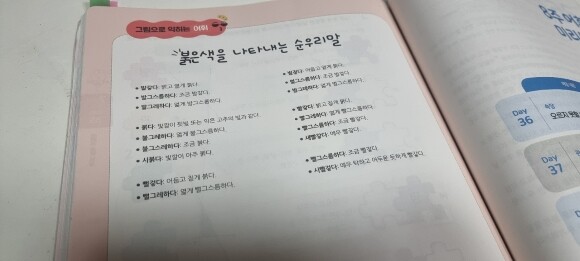 그림으로 익히는 어휘
붉은색을 나타내는 순우리말
• 발갛다: 밝고 엷게 붉다.
• 발그스름하다: 조금 발갛다.
• 발그레하다: 엷게 발그스름하다.
• 붉다: 빛깔이 핏빛 또는 익은 고추의 빛과 같다.
• 불그레하다: 엷게 불그스름하다.
• 불그스름하다: 조금 붉다.
• 시붉다: 빛깔이 아주 붉다.
• 뻘겋다: 어둡고 짙게 붉다.
• 뻘그레하다: 엷게 뻘그스름하다.
• 벌겋다: 어둡고 엷게 붉다.
• 벌그스름하다: 조금 벌겋다.
• 벌그레하다: 엷게 벌그스름하다.
• 빨갛다: 밝고 짙게 붉다.
• 빨그레하다: 엷게 빨그스름하다.
• 빨그스름하다: 조금 빨갛다.
• 새빨갛다: 매우 빨갛다.
• 뻘그스름하다: 조금 뻘겋다.
• 시뻘겋다: 매우
뻘겋다.
8주
Day
36
Day
37